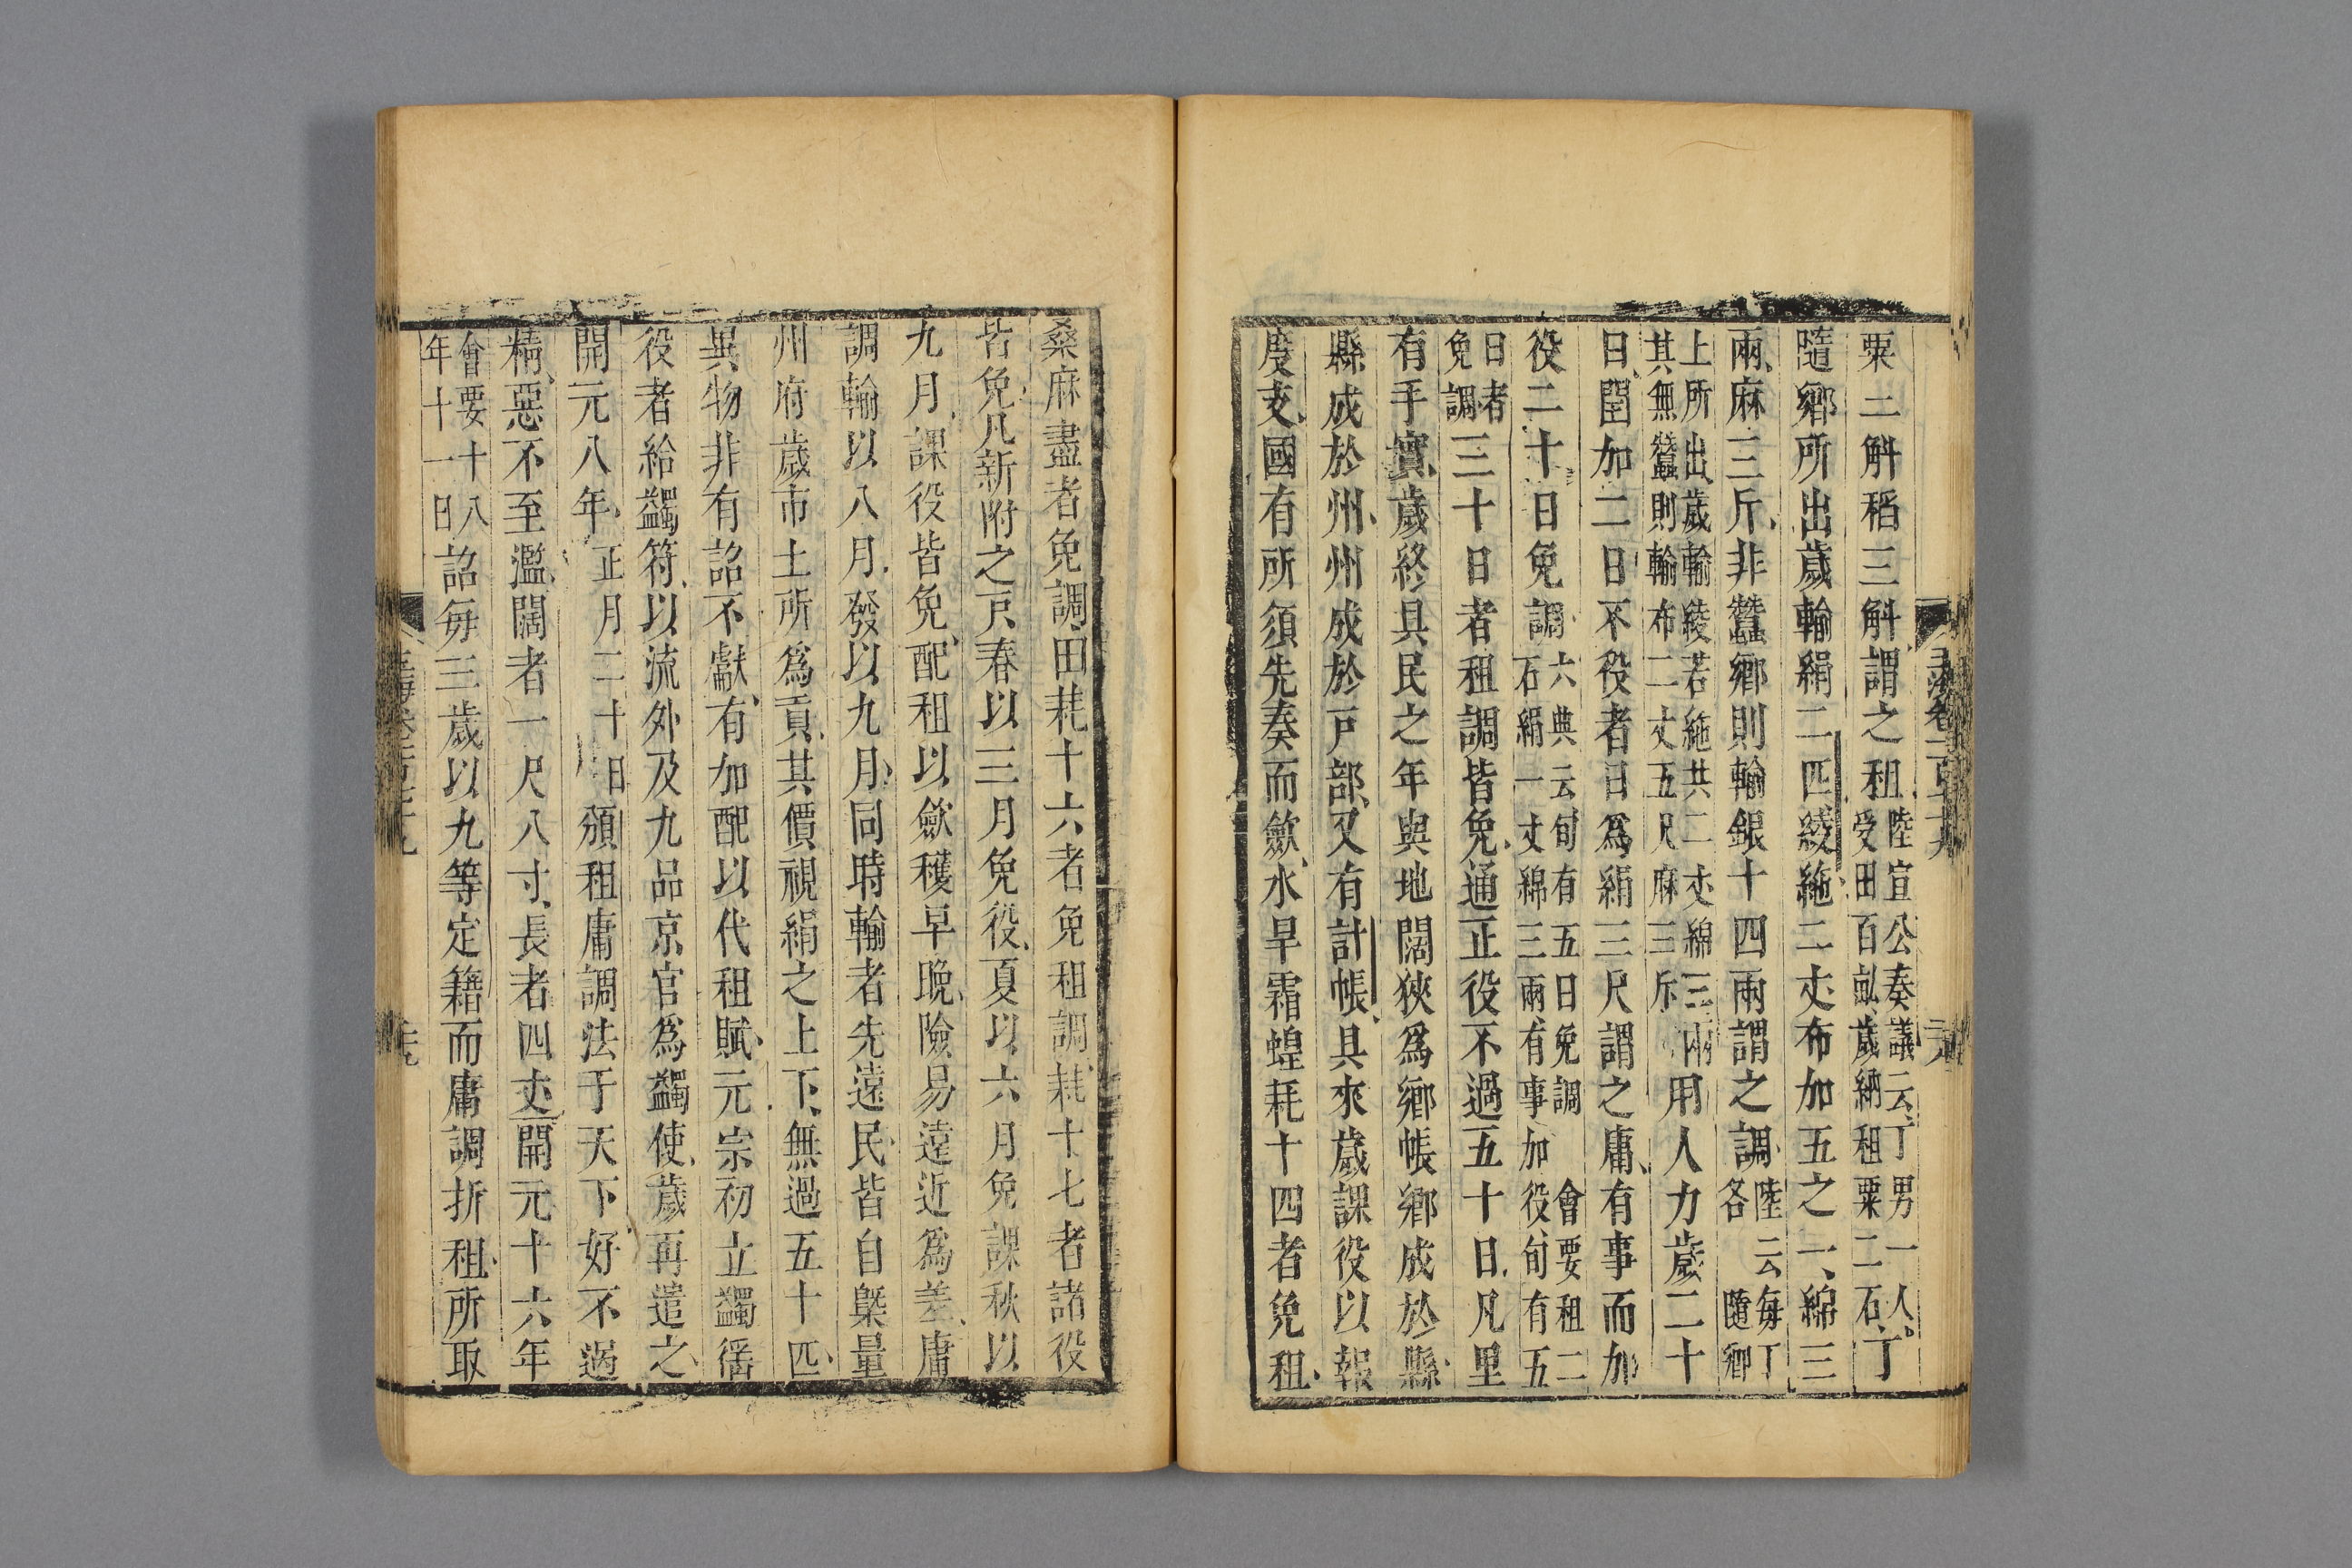 粟二斛稻三斛謂之租陸宣公奏議云丁男一人受田百畝歲納租粟二石丁
隨鄉所出歲輸絹二匹綾絁二丈布加五之一綿三
兩麻三斤非蠶鄉則輸銀十四兩謂之調陸云每丁各隨鄉
上所出歲輸綾若絁共二丈綿三兩其無蠶則輸布二丈五尺麻三斤用人力歲二十
日閏加二日不役者日爲絹三尺謂之庸有事而加
役二十日免調六典云旬有五日免調石絹一丈綿三兩有事加會要租二役旬有五
日者免調三十日者租調皆免通正役不過五十日凡里
有手實歲終具民之年與地闊狹爲鄉帳鄉成於縣
縣成於州州成於戸部又有計帳具來歲課役以報
度支國有所須先奏而斂水旱霜蝗耗十四者免租
桑麻盡者免調田耗十六者免租調耗十七者諸役
皆免凡新附之戸春以三月免役夏以六月免課秋以
九月課役皆免配租以斂穫早晚險易遠近爲差庸
調輸以八月發以九月同時輸者先遠民皆自槩量
州府歲市土所爲貢其價視絹之上下無過五十匹
異物非有詔不獻有加配以代租賦元宗初立蠲徭
役者給蠲符以流外及九品京官爲蠲使歲再遣之
開元八年正月二十日頒租庸調法于天下好不過
精惡不至濫闊者一尺八寸長者四丈開元十六年
會要十八年十一日詔每三歲以九等定籍而庸調折租所取